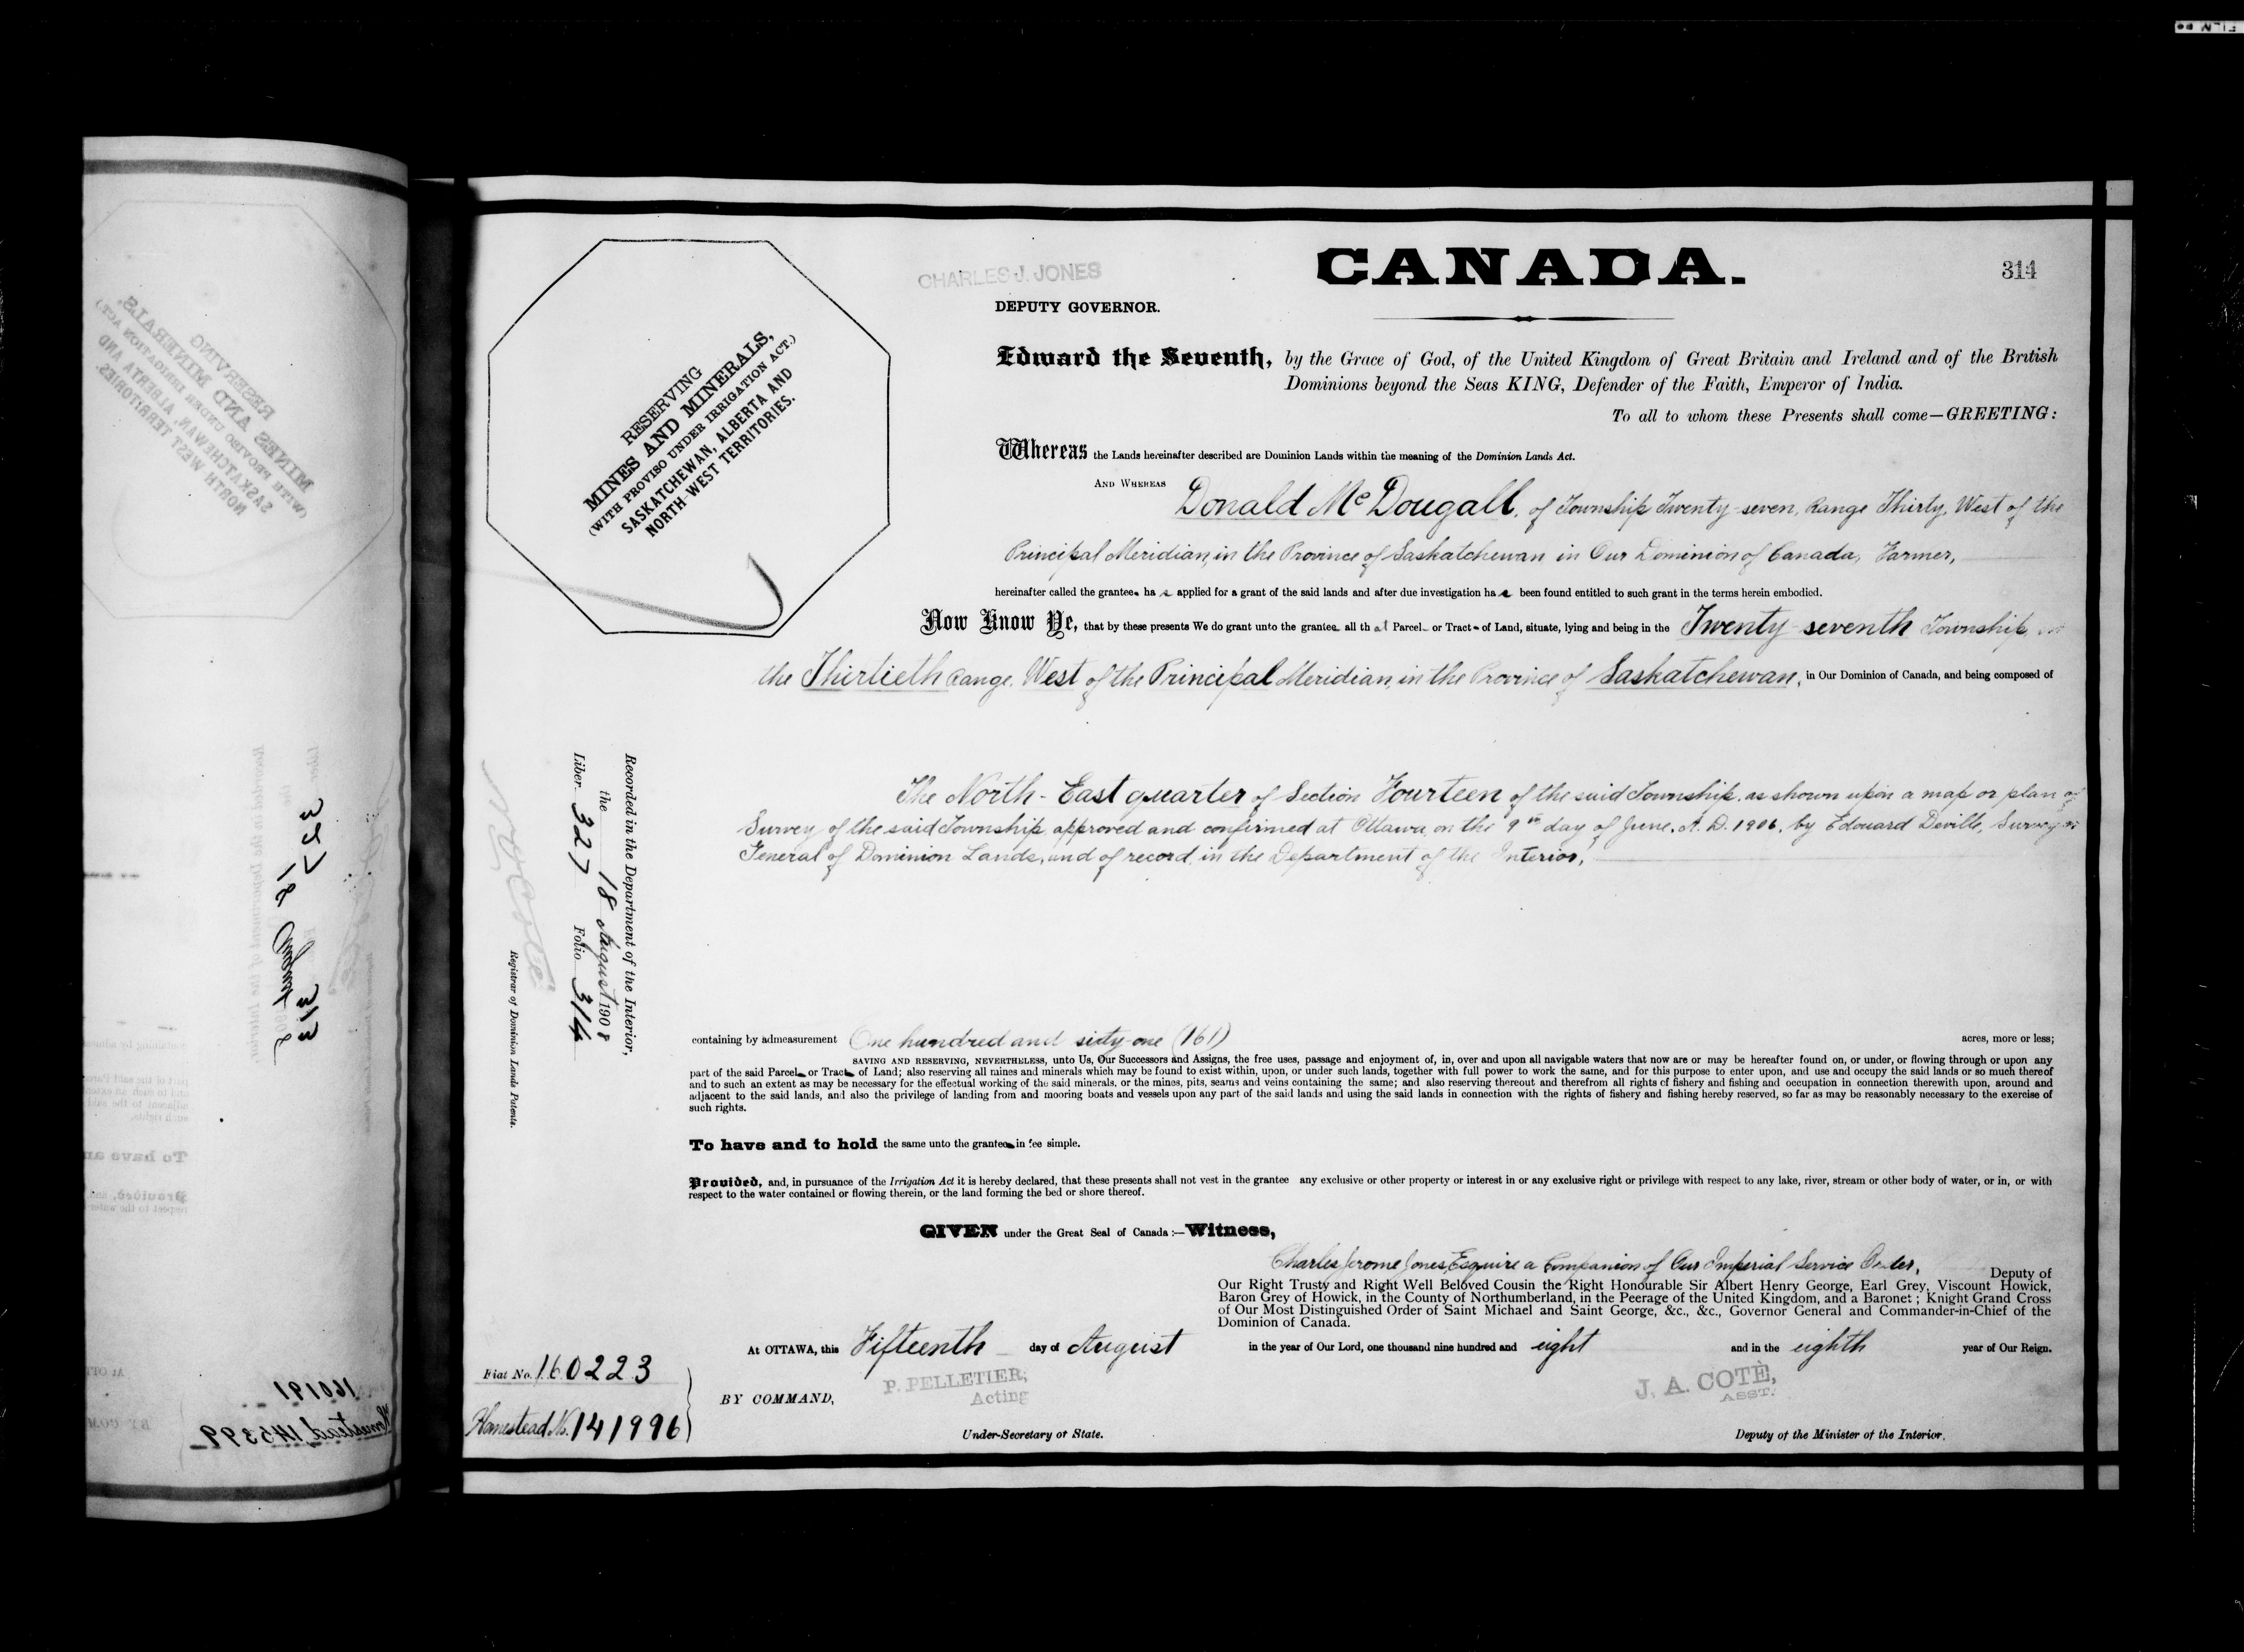 CHARLES J. JONES
CANADA.
314
DEPUTY GOVERNOR.
RESERVING
MINES AND MINERALS,
(WITH PROVISO UNDER IRRIGATION ACT.)
SASKATCHEWAN, ALBERTA AND
NORTH-WEST TERRITORIES.
Edward the Seventh, by the Grace of God, of the United Kingdom of Great Britain and Ireland and of the British
Dominions beyond the Seas KING, Defender of the Faith, Emperor of India.
To all to whom these Presents shall come—GREETING:
Whereas the Lands hereinafter described are Dominion Lands within the meaning of the Dominion Lands Act.
AND WHEREAS Donald McDougall, of Township Twenty-seven, Range Thirty, West of the
Principal Meridian, in the Province of Saskatchewan in Our Dominion of Canada, Farmer,
hereinafter called the grantee ha s applied for a grant of the said lands and after due investigation ha s been found entitled to such grant in the terms herein embodied.
Now Know Ye, that by these presents We do grant unto the grantee all th at Parcel or Tract of Land, situate, lying and being in the Twenty-seventh Township, in
the Thirtieth Range, West of the Principal Meridian, in the Province of Saskatchewan, in Our Dominion of Canada, and being composed of
The North-East quarter of Section Fourteen of the said Township, as shown upon a map or plan of
Survey of the said Township, approved and confirmed at Ottawa, on the 9th day of June, A. D. 1906, by Edouard Deville, Surveyor
General of Dominion Lands, and of record in the Department of the Interior,
Recorded in the Department of the Interior,
the 18 August 1908
Liber 327 Folio 314
Registrar of Dominion Lands Patents.
containing by admeasurement One hundred and sixty-one (161) acres, more or less;
SAVING AND RESERVING, NEVERTHELESS, unto Us, Our Successors and Assigns, the free uses, passage and enjoyment of, in, over and upon all navigable waters that now are or may be hereafter found on, or under, or flowing through or upon any
part of the said Parcel or Tract of Land; also reserving all mines and minerals which may be found to exist within, upon, or under such lands, together with full power to work the same, and for this purpose to enter upon, and use and occupy the said lands or so much thereof
and to such an extent as may be necessary for the effectual working of the said minerals, or the mines, pits, seams and veins containing the same; and also reserving thereout and therefrom all rights of fishery and fishing and occupation in connection therewith upon, around and
adjacent to the said lands, and also the privilege of landing from and mooring boats and vessels upon any part of the said lands and using the said lands in connection with the rights of fishery and fishing hereby reserved, so far as may be reasonably necessary to the exercise of
such rights.
To have and to hold the same unto the grantee in fee simple.
Provided, and, in pursuance of the Irrigation Act it is hereby declared, that these presents shall not vest in the grantee any exclusive or other property or interest in or any exclusive right or privilege with respect to any lake, river, stream or other body of water, or in, or with
respect to the water contained or flowing therein, or the land forming the bed or shore thereof.
GIVEN under the Great Seal of Canada:—Witness,
Charles Jerome Jones, Esquire a Companion of Our Imperial Service Order, Deputy of
Our Right Trusty and Right Well Beloved Cousin the Right Honourable Sir Albert Henry George, Earl Grey, Viscount Howick,
Baron Grey of Howick, in the County of Northumberland, in the Peerage of the United Kingdom, and a Baronet; Knight Grand Cross
of Our Most Distinguished Order of Saint Michael and Saint George, &c., &c., Governor General and Commander-in-Chief of the
Dominion of Canada.
At OTTAWA, this Fifteenth day of August in the year of Our Lord, one thousand nine hundred and eight and in the eighth year of Our Reign.
Fiat No. 160223
Homestead No. 141996
BY COMMAND,
P. PELLETIER,
Acting
Under-Secretary of State.
J. A. COTÈ,
ASST.
Deputy of the Minister of the Interior.